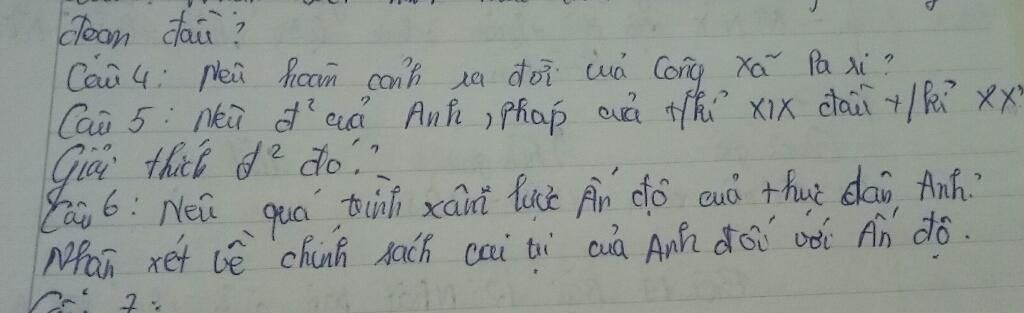 đoạn đầu?
Câu 4: Nêu hoàn cảnh ra đời của Công xã Pa ri?
Câu 5: Nêu đ² của Anh, Pháp của t/kỉ XIX đầu t/kỉ XX?
Giải thích đ² đó?
Câu 6: Nêu quá trình xâm lược Ấn độ của thực dân Anh?
Nhận xét về chính sách cai trị của Anh đối với Ấn độ.
Câu 7: